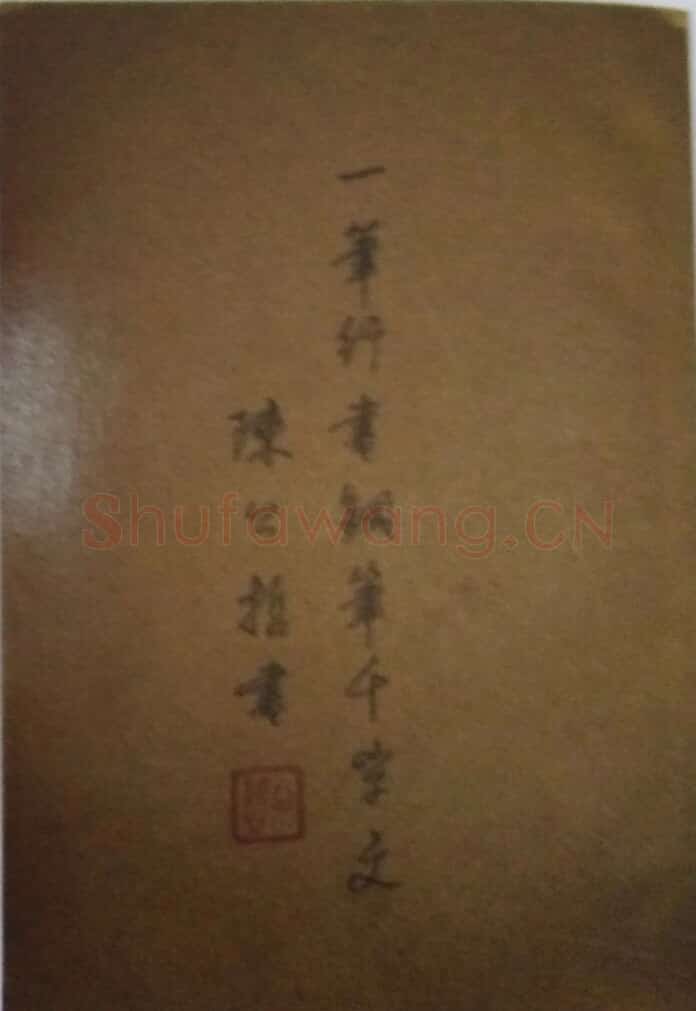 一筆行書鋼筆千字文
陳公哲書
Shufawang.CN